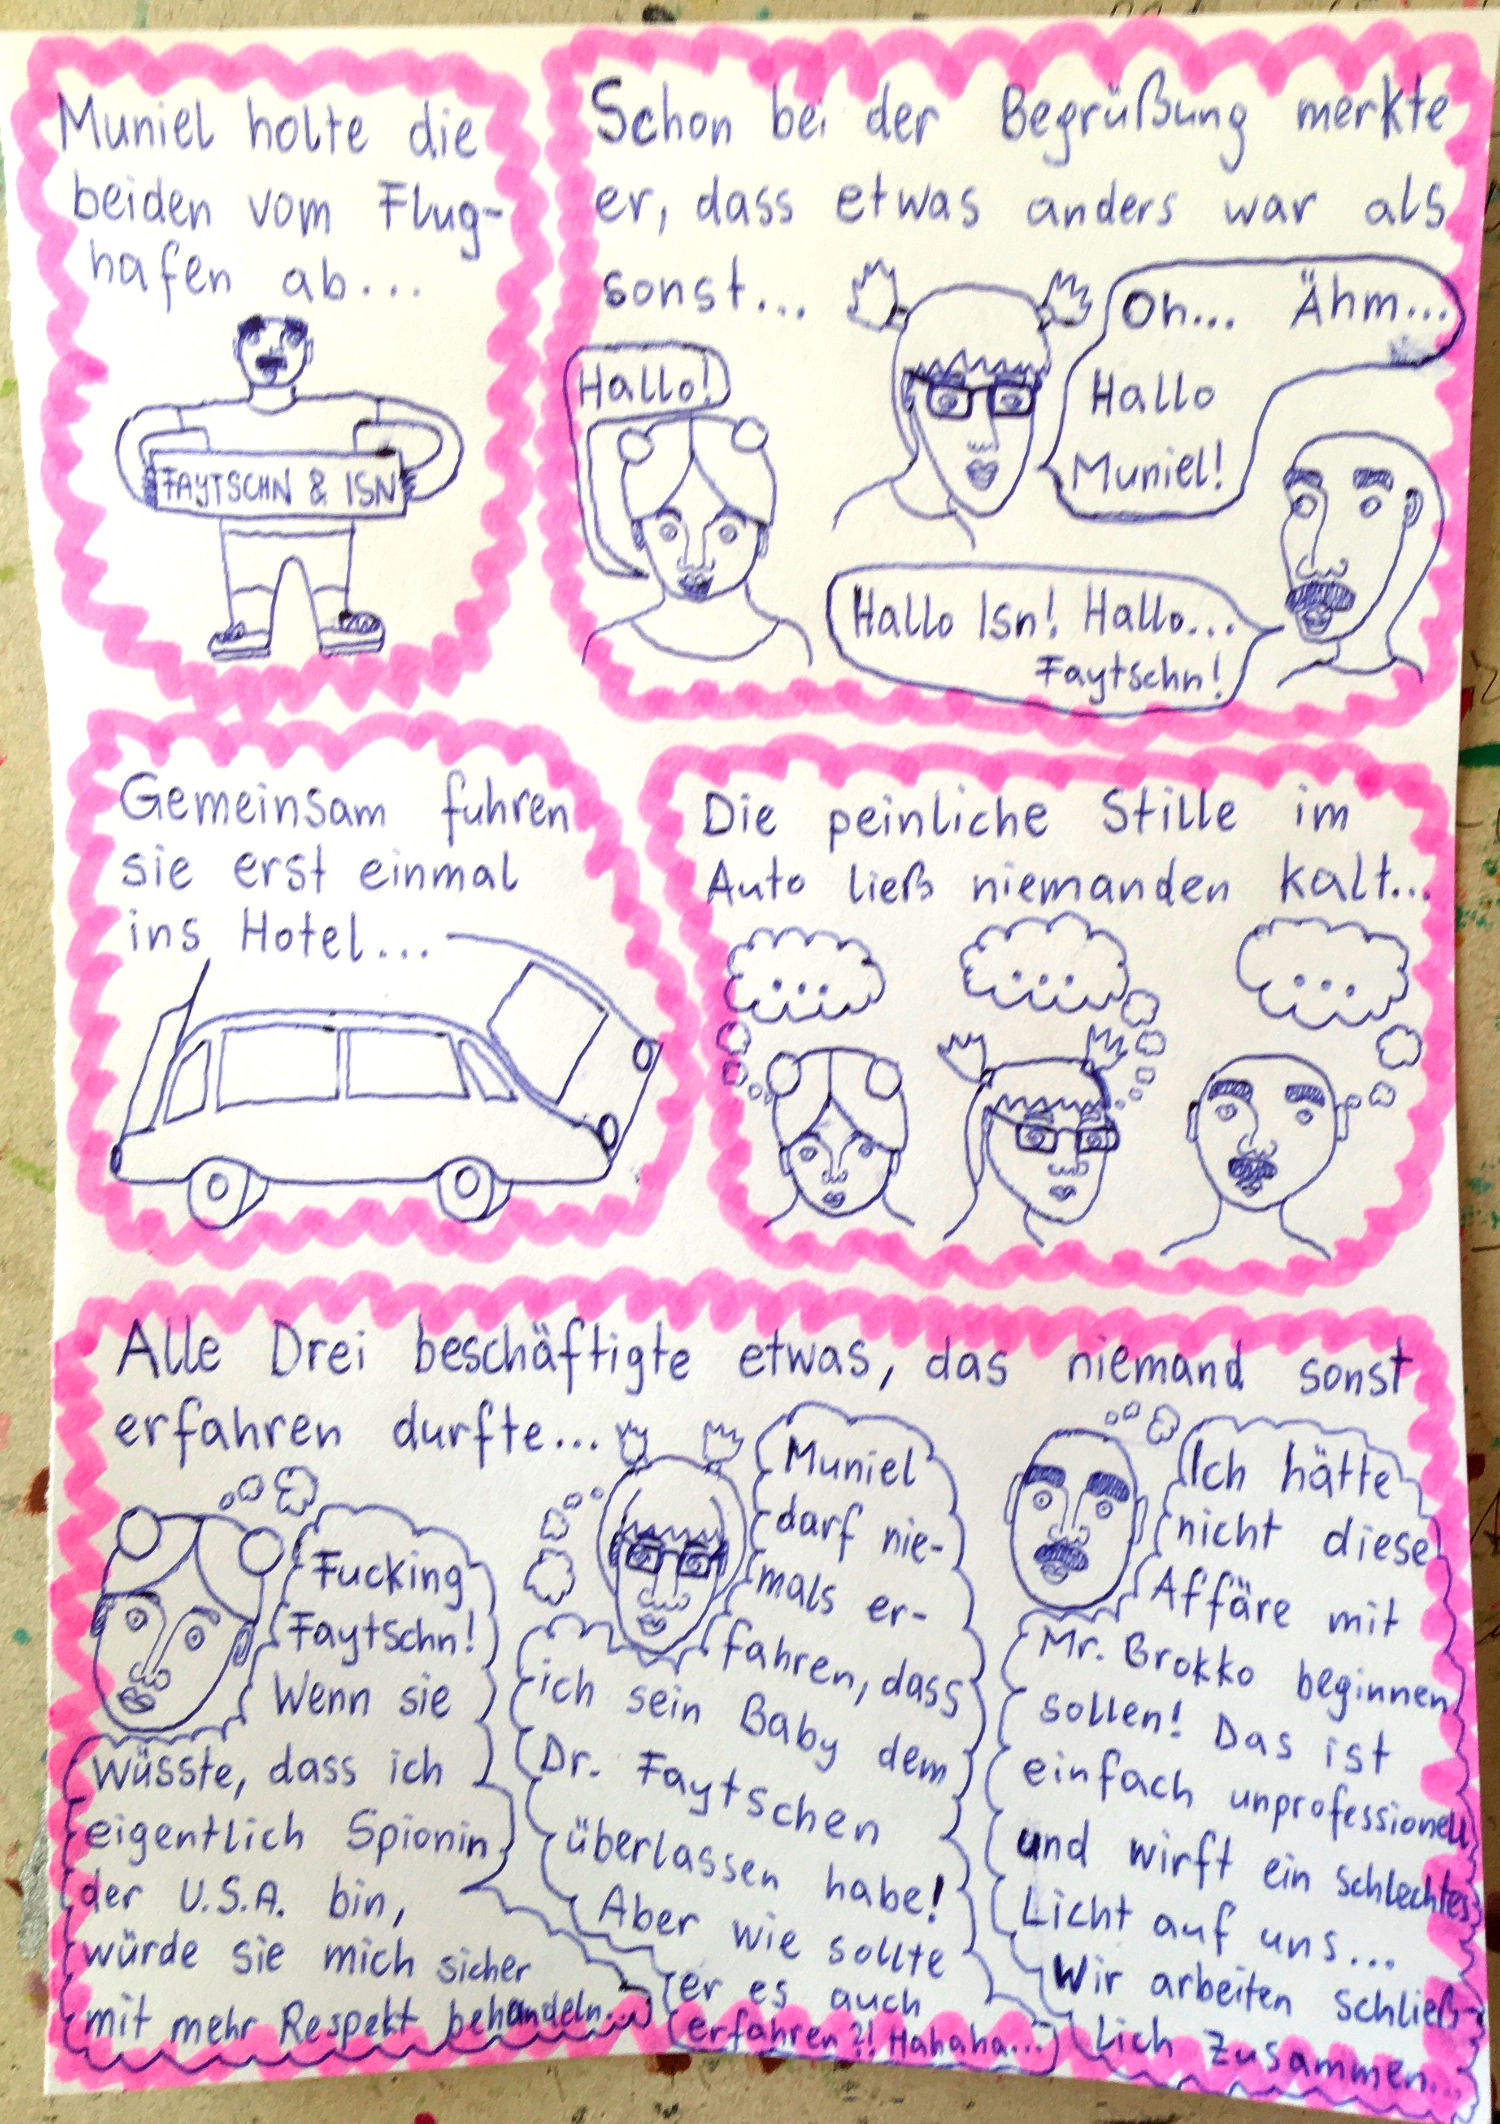 Muniel holte die
beiden vom Flug-
hafen ab...
FAYTSCHN & ISN
Schon bei der Begrüßung merkte
er, dass etwas anders war als
sonst...
Hallo!
Oh... Ähm...
Hallo
Muniel!
Hallo Isn! Hallo...
Faytschn!
Gemeinsam fuhren
sie erst einmal
ins Hotel...
Die peinliche Stille im
Auto ließ niemanden kalt...
...
...
...
Alle Drei beschäftigte etwas, das niemand sonst
erfahren durfte...
Fucking
Faytschn!
Wenn sie
wüsste, dass ich
eigentlich Spionin
der U.S.A. bin,
würde sie mich sicher
mit mehr Respekt behandeln...
Muniel
darf nie-
mals er-
fahren, dass
ich sein Baby dem
Dr. Faytschen
überlassen habe!
Aber wie sollte
er es auch
erfahren?! Hahaha...
Ich hätte
nicht diese
Affäre mit
Mr. Brokko beginnen
sollen! Das ist
einfach unprofessionell
und wirft ein schlechtes
Licht auf uns...
Wir arbeiten schließ-
lich zusammen...